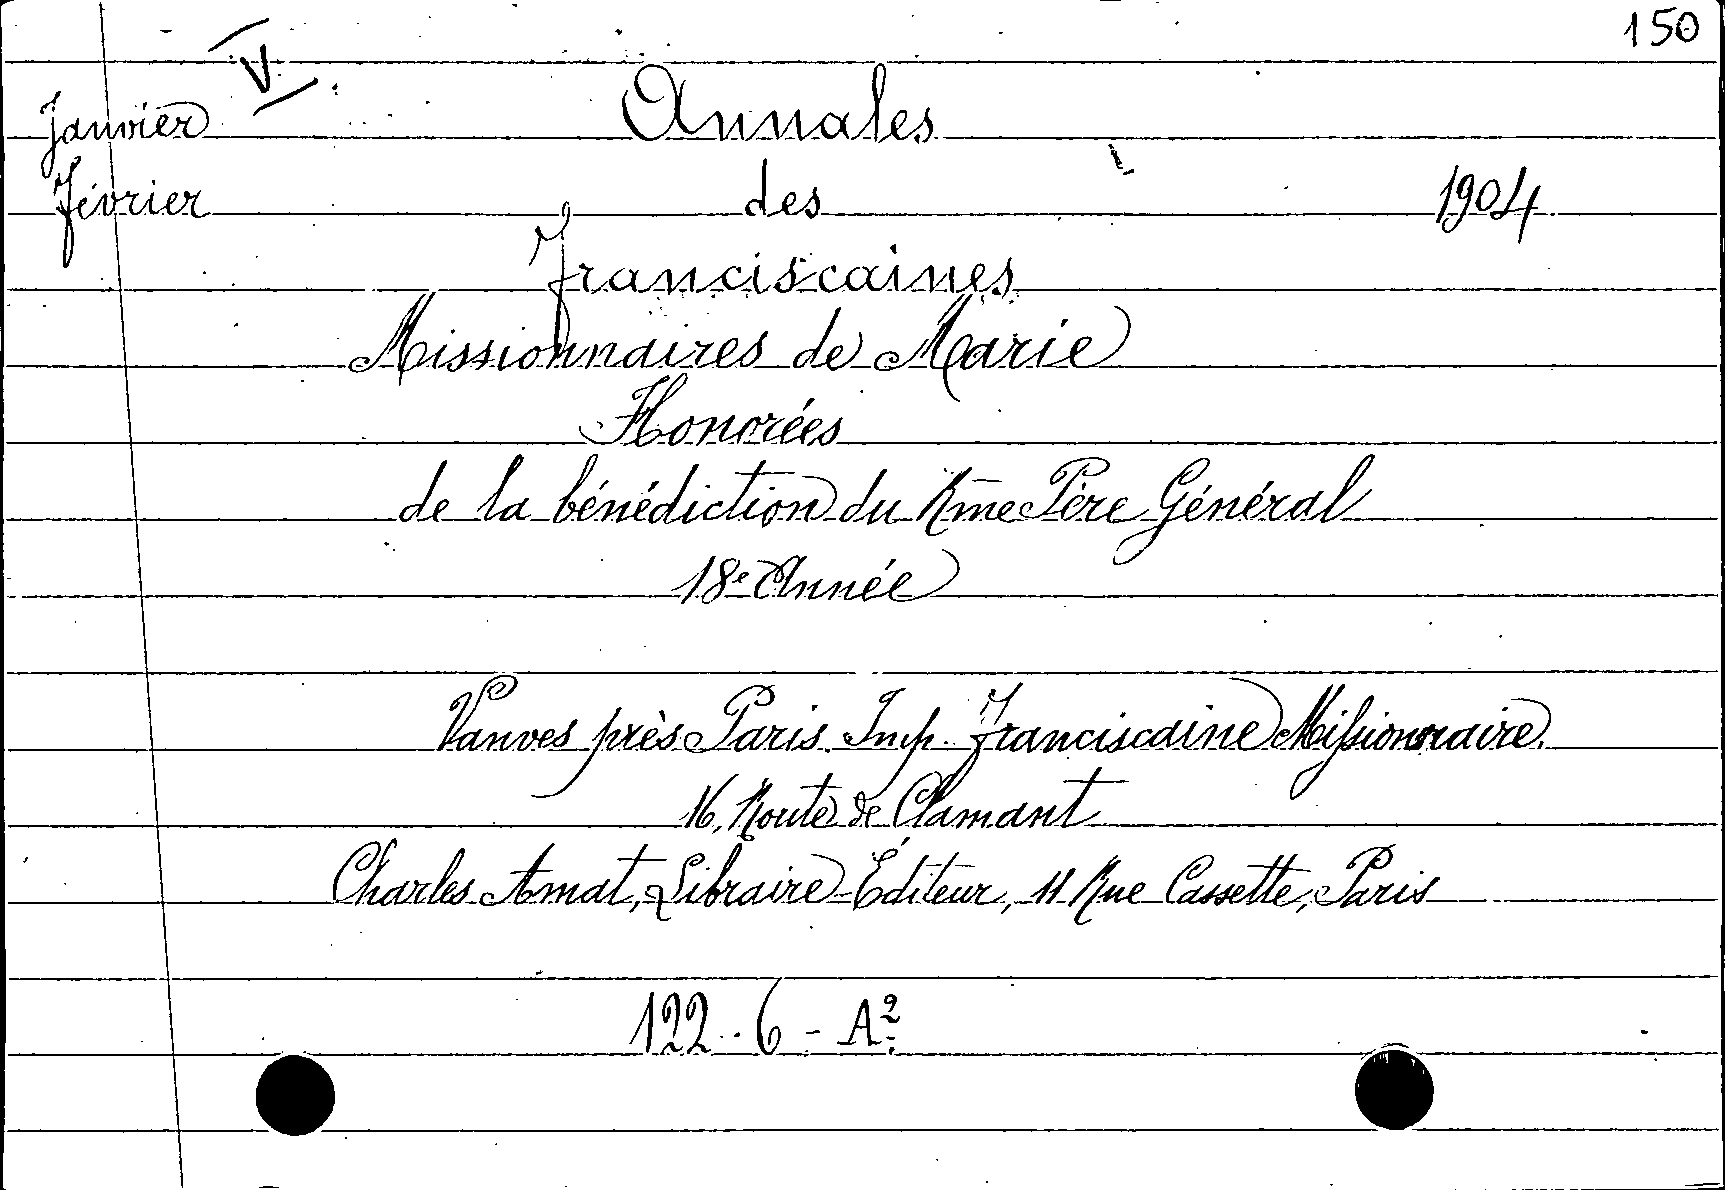 150
V
Janvier
Février
Annales
des
1904
Franciscaines
Missionnaires de Marie
Honorées
de la bénédiction du Rme Père Général
18e Année
Vanves près Paris. Imp. Franciscaine Missionnaire.
16, Route de Clamant
Charles Amat, Libraire-Éditeur, 11 Rue Cassette, Paris
122-6-A2